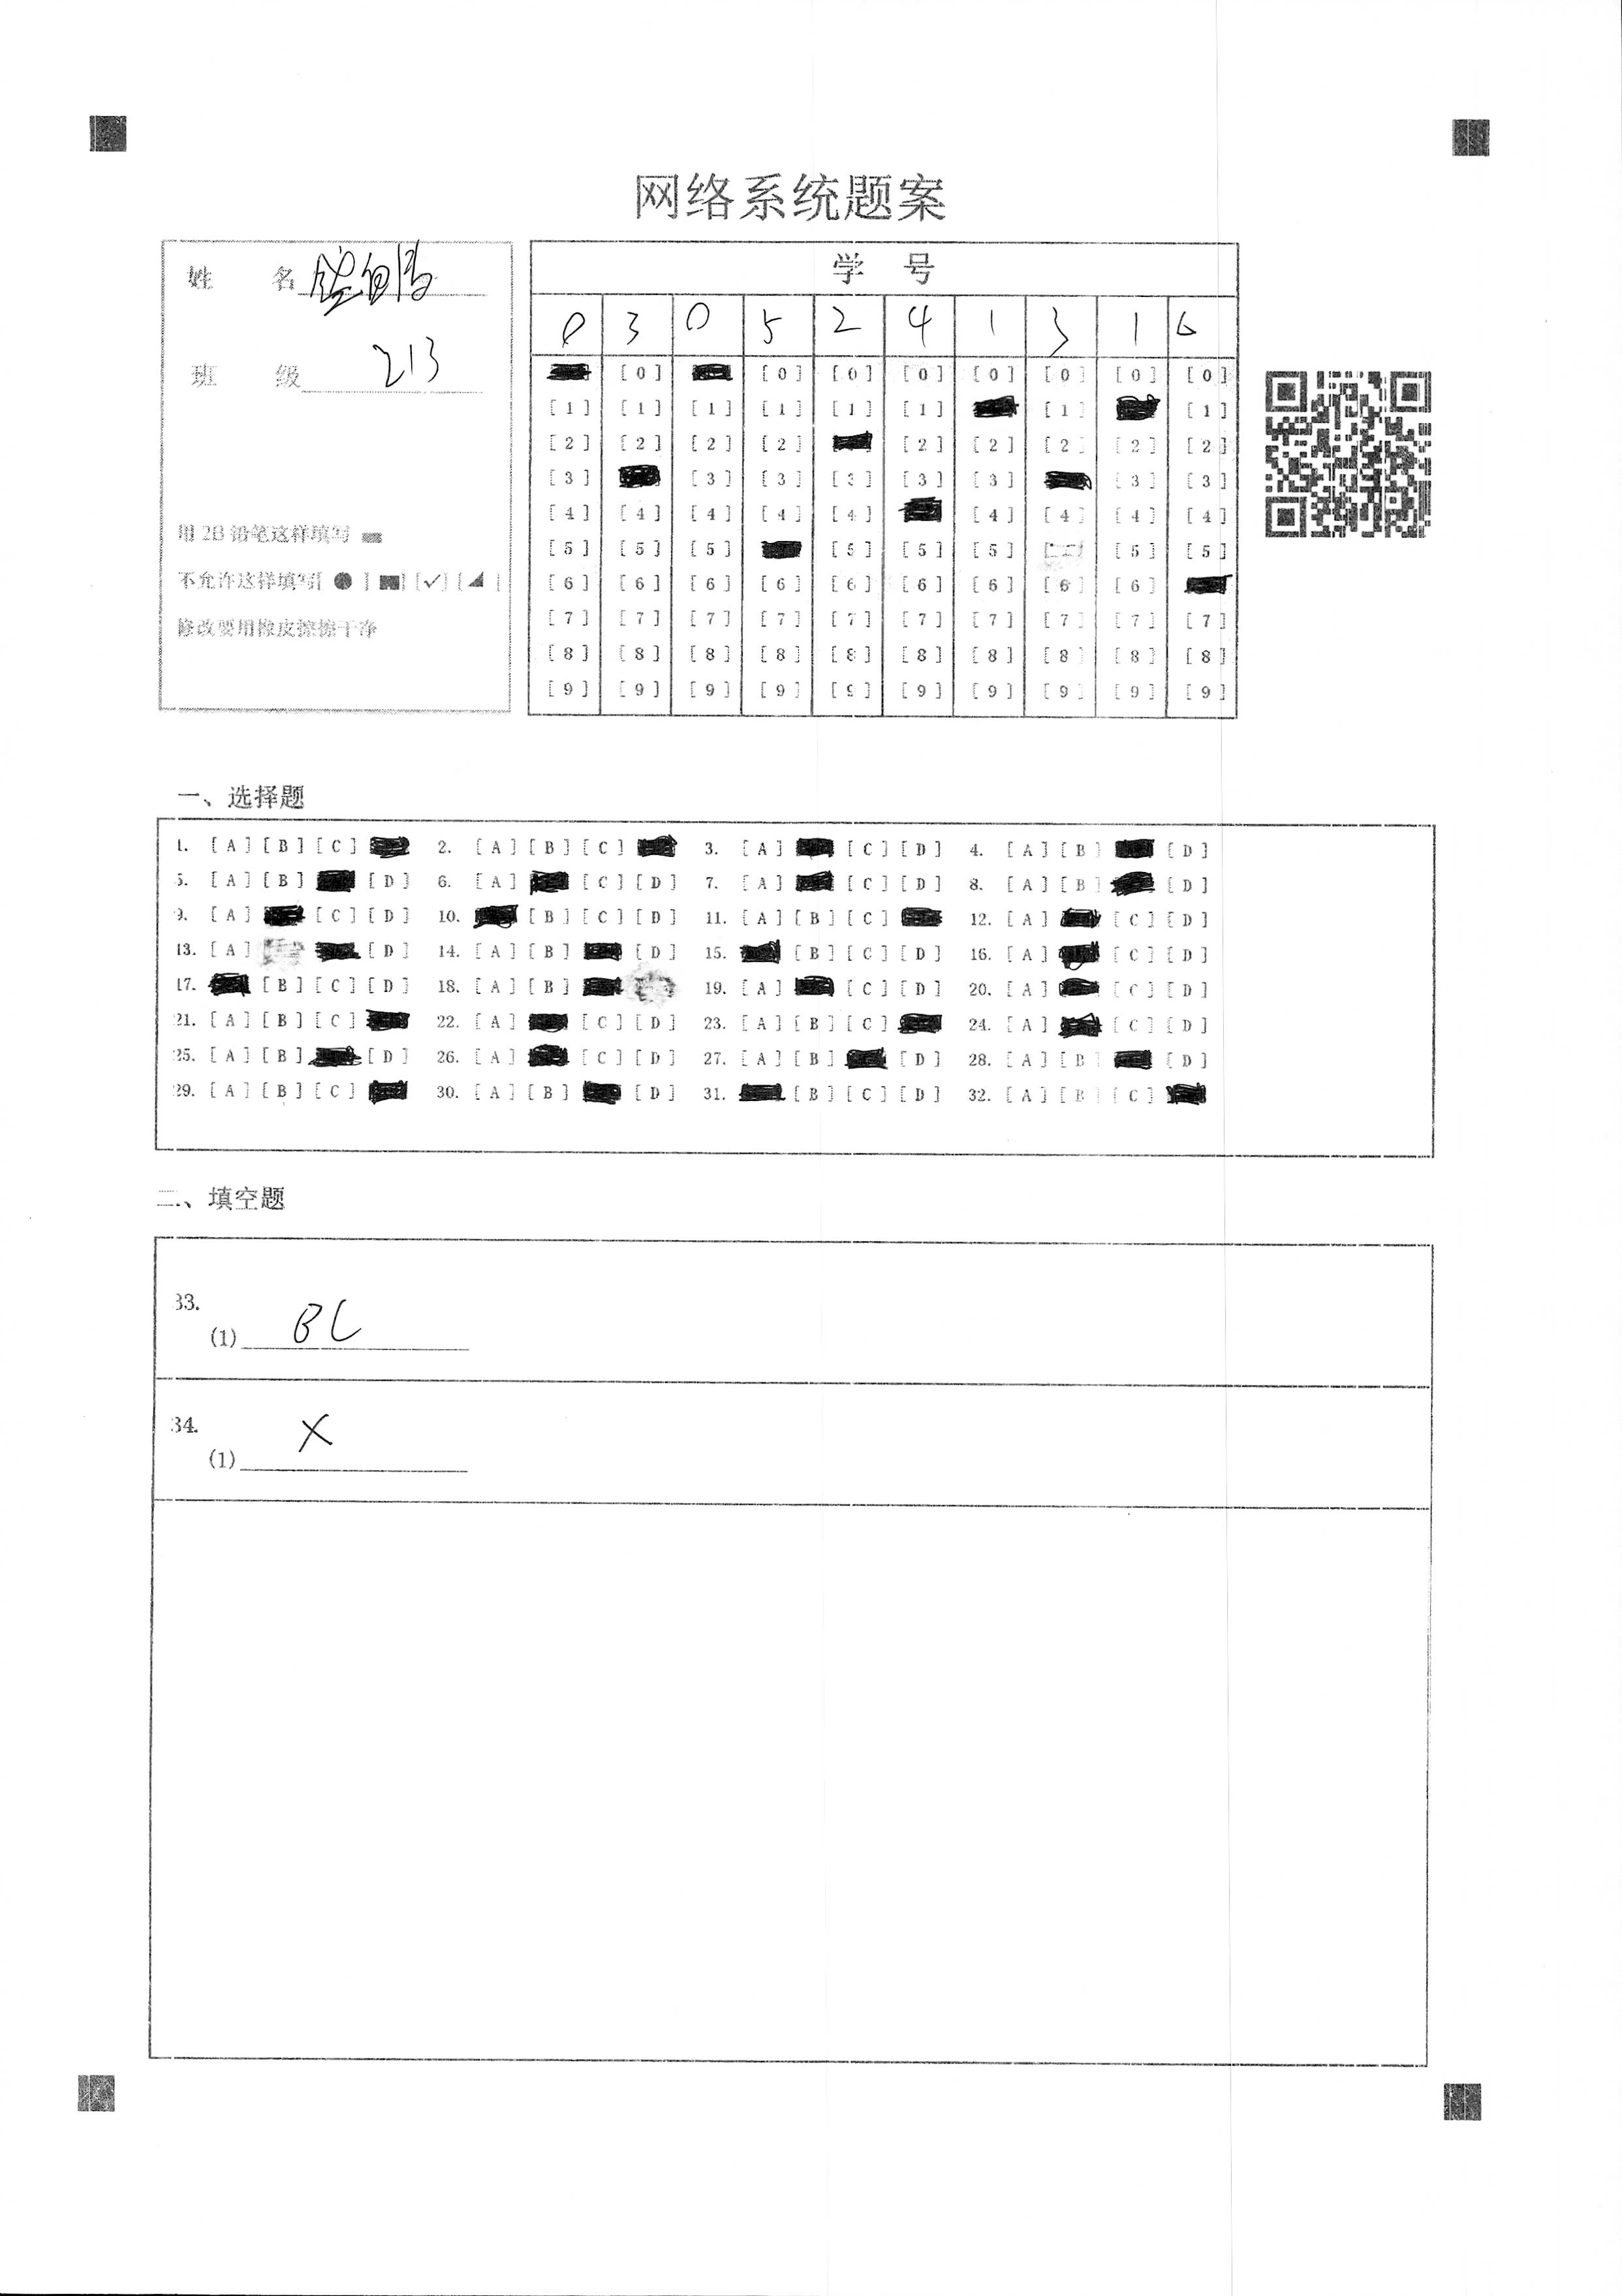 网络系统题案
姓 名
班 级 213
用 2B 铅笔这样填写
不允许这样填写[ ● ] [■] [✓] [◢ ]
修改要用橡皮擦擦干净
学 号
0 3 0 5 2 4 1 3 1 6
[0] [0] [0] [0] [0] [0] [0] [0]
[1] [1] [1] [1] [1] [1] [1] [1]
[2] [2] [2] [2] [2] [2] [2] [2] [2]
[3] [3] [3] [3] [3] [3] [3] [3]
[4] [4] [4] [4] [4] [4] [4] [4] [4]
[5] [5] [5] [5] [5] [5] [5] [5]
[6] [6] [6] [6] [6] [6] [6] [6] [6]
[7] [7] [7] [7] [7] [7] [7] [7] [7] [7]
[8] [8] [8] [8] [8] [8] [8] [8] [8] [8]
[9] [9] [9] [9] [9] [9] [9] [9] [9] [9]
一、选择题
1. [A] [B] [C] 2. [A] [B] [C] 3. [A] [C] [D] 4. [A] [B] [D]
5. [A] [B] [D] 6. [A] [C] [D] 7. [A] [C] [D] 8. [A] [B] [D]
9. [A] [C] [D] 10. [B] [C] [D] 11. [A] [B] [C] 12. [A] [C] [D]
13. [A] [D] 14. [A] [B] [D] 15. [B] [C] [D] 16. [A] [C] [D]
17. [B] [C] [D] 18. [A] [B] 19. [A] [C] [D] 20. [A] [C] [D]
21. [A] [B] [C] 22. [A] [C] [D] 23. [A] [B] [C] 24. [A] [C] [D]
25. [A] [B] [D] 26. [A] [C] [D] 27. [A] [B] [D] 28. [A] [B] [D]
29. [A] [B] [C] 30. [A] [B] [D] 31. [B] [C] [D] 32. [A] [B] [C]
二、填空题
33.
(1) BC
34.
(1) X